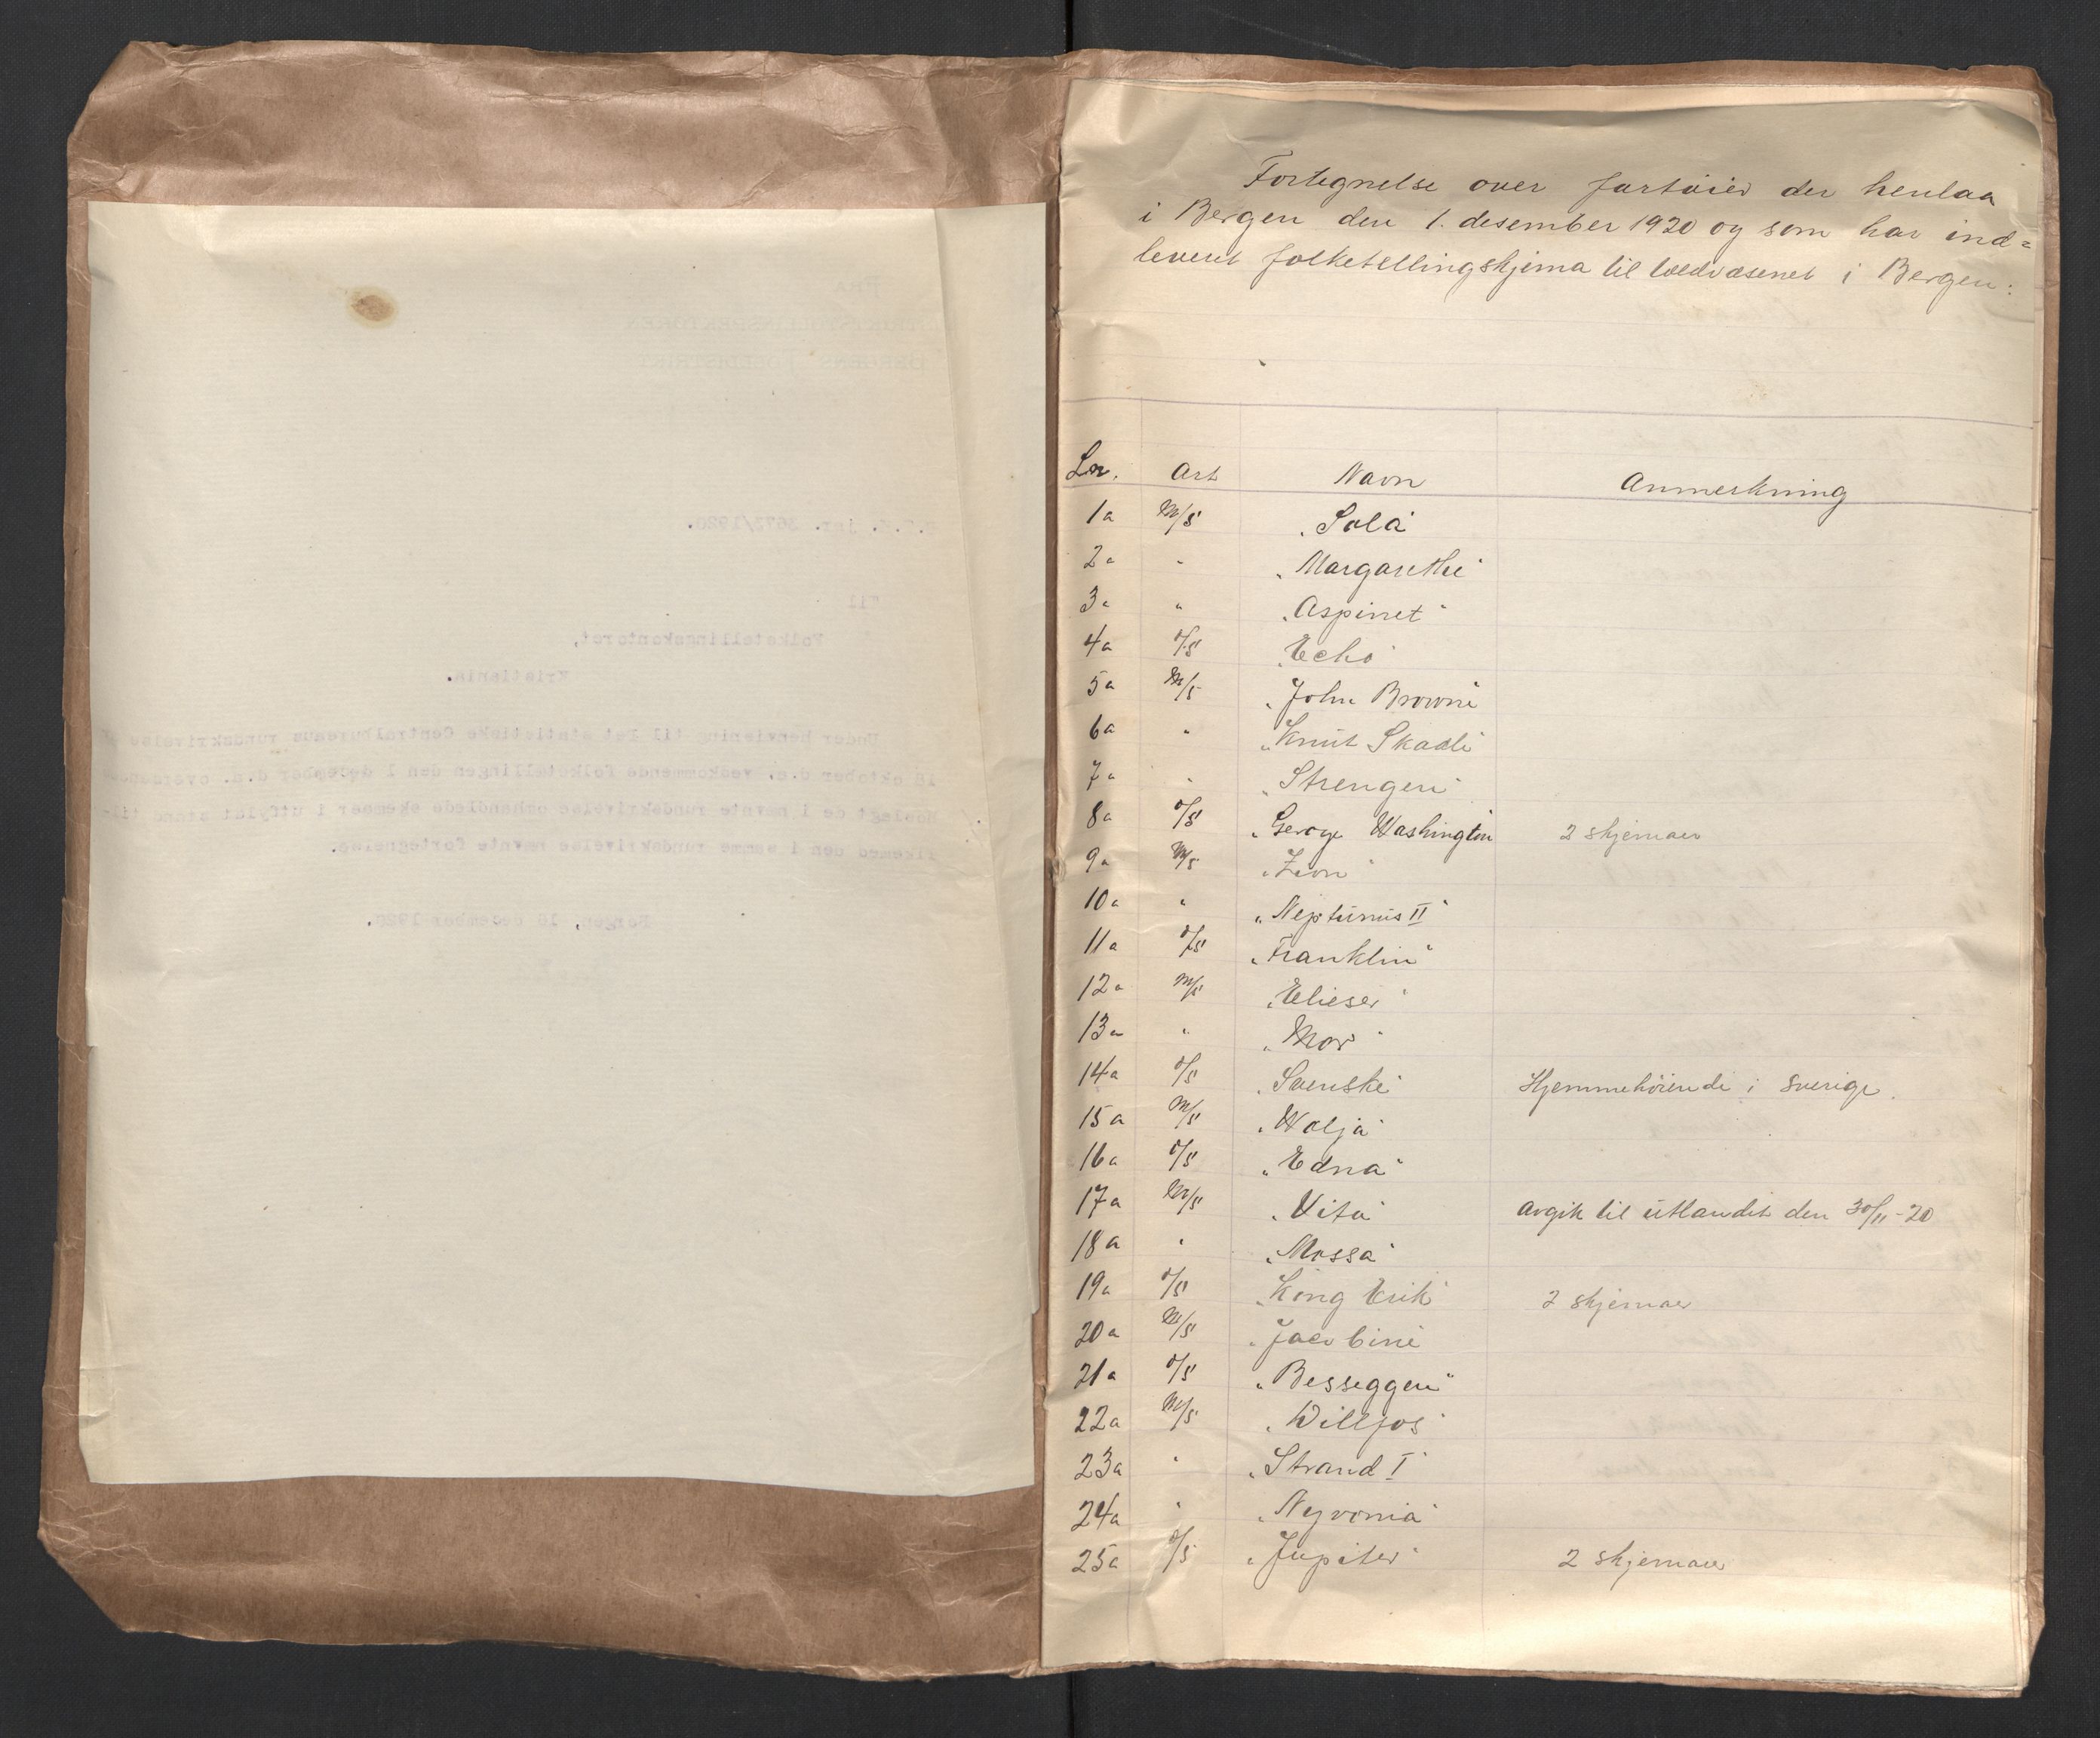 FRA
BERGENS TOLLDISTRIKT
jnr. 3673/1920.
Til
Folketellingskontoret,
Kristiania.
Under henvisning til Det statistiske Centralbureaus rundskrivelse
18 oktober d.a. vedkommende folketellingen den 1 december d.a. oversendes
vedlagt de i nævnte rundskrivelse omhandlede skemaer i utfylgt stand til-
likemed den i samme rundskrivelse nævnte fortegnelse.
Bergen, 16 december 1920.
Fortegnelse over fartöier der henlaa
i Bergen den 1. desember 1920 og som har ind=
leveret folketellingskjema til toldvæsenet i Bergen:
Lnr. Art Navn Anmerkning
1a M/S „Sola"
2a " „Margarethe"
3a " „Aspinet"
4a D/S „Echo"
5a M/S „John Browne"
6a " „Knut Skaale"
7a " „Strengen"
8a D/S „George Washington" 2 skjemaer
9a M/S „Zion"
10a " „Neptunus II"
11a D/S „Franklin"
12a M/S „Elieser"
13a " „Mor"
14a D/S „Svenske" Hjemmehörende i Sverige.
15a M/S „Wolja"
16a D/S „Edna"
17a M/S „Vita" Avgik til utlandet den 30/11-20
18a " „Mossa"
19a D/S „Kong Erik" 2 skjemaer
20a M/S „Jacobine"
21a D/S „Besseggen"
22a M/S „Willjos"
23a " „Strand I"
24a " „Nyvonia"
25a D/S „Jupiter" 2 skjemaer